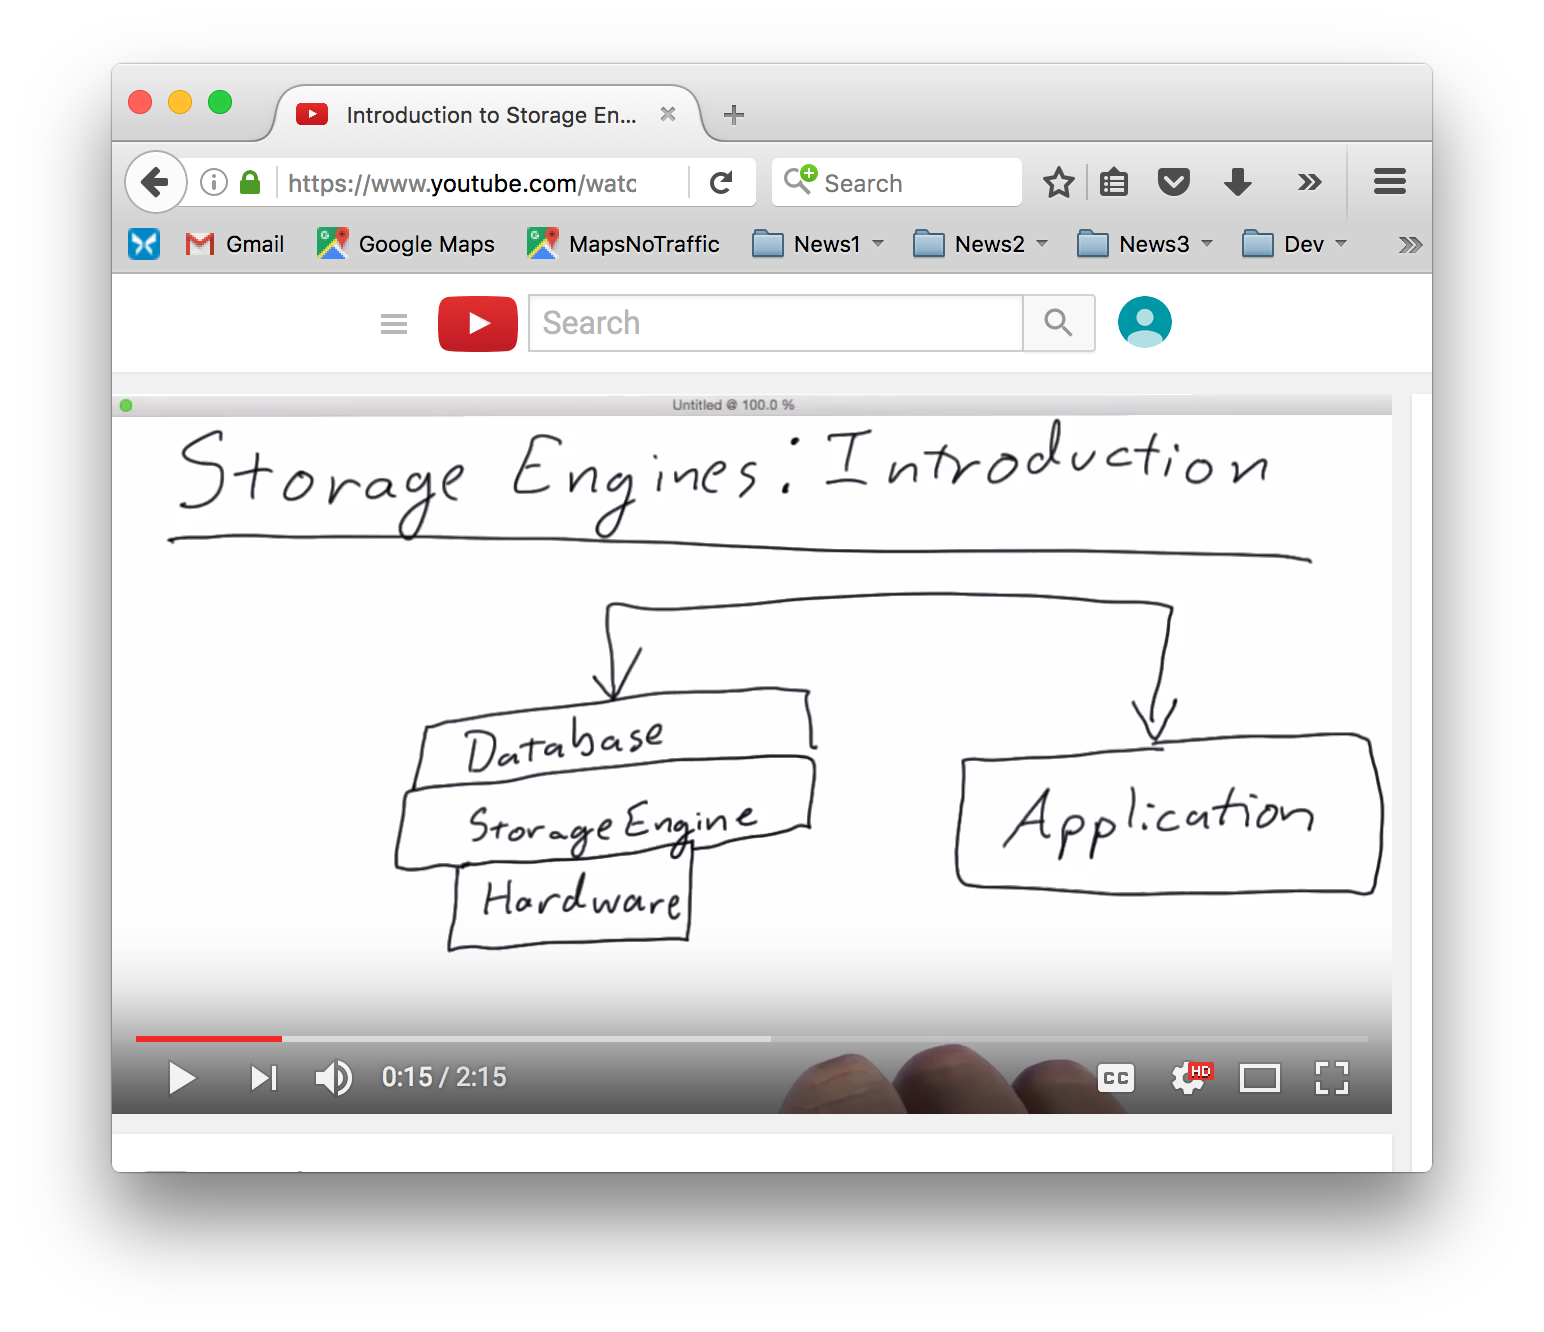 Introduction to Storage En...
https://www.youtube.com/watc
Search
Gmail
Google Maps
MapsNoTraffic
News1
News2
News3
Dev
Search
Untitled @ 100.0 %
Storage Engines: Introduction
Database
Storage Engine
Hardware
Application
0:15 / 2:15
CC
HD